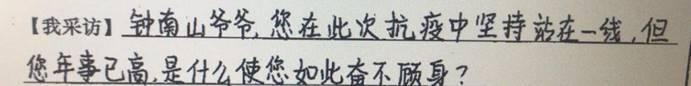 【我采访】钟南山爷爷,您在此次抗疫中坚持站在一线,但
您年事已高,是什么使您如此奋不顾身?